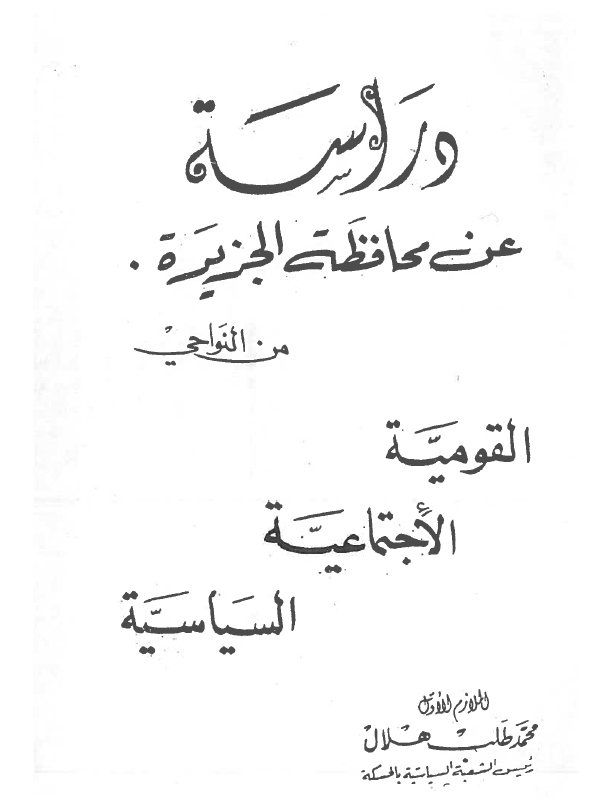 دراسة
عن محافظة الجزيرة .
من النواحي
القوميّة
الأجتماعيّة
السياسيّة
الملازم الأول
محمّد طلب هلال
رئيس الشعبة السياسيّة بالحسكة